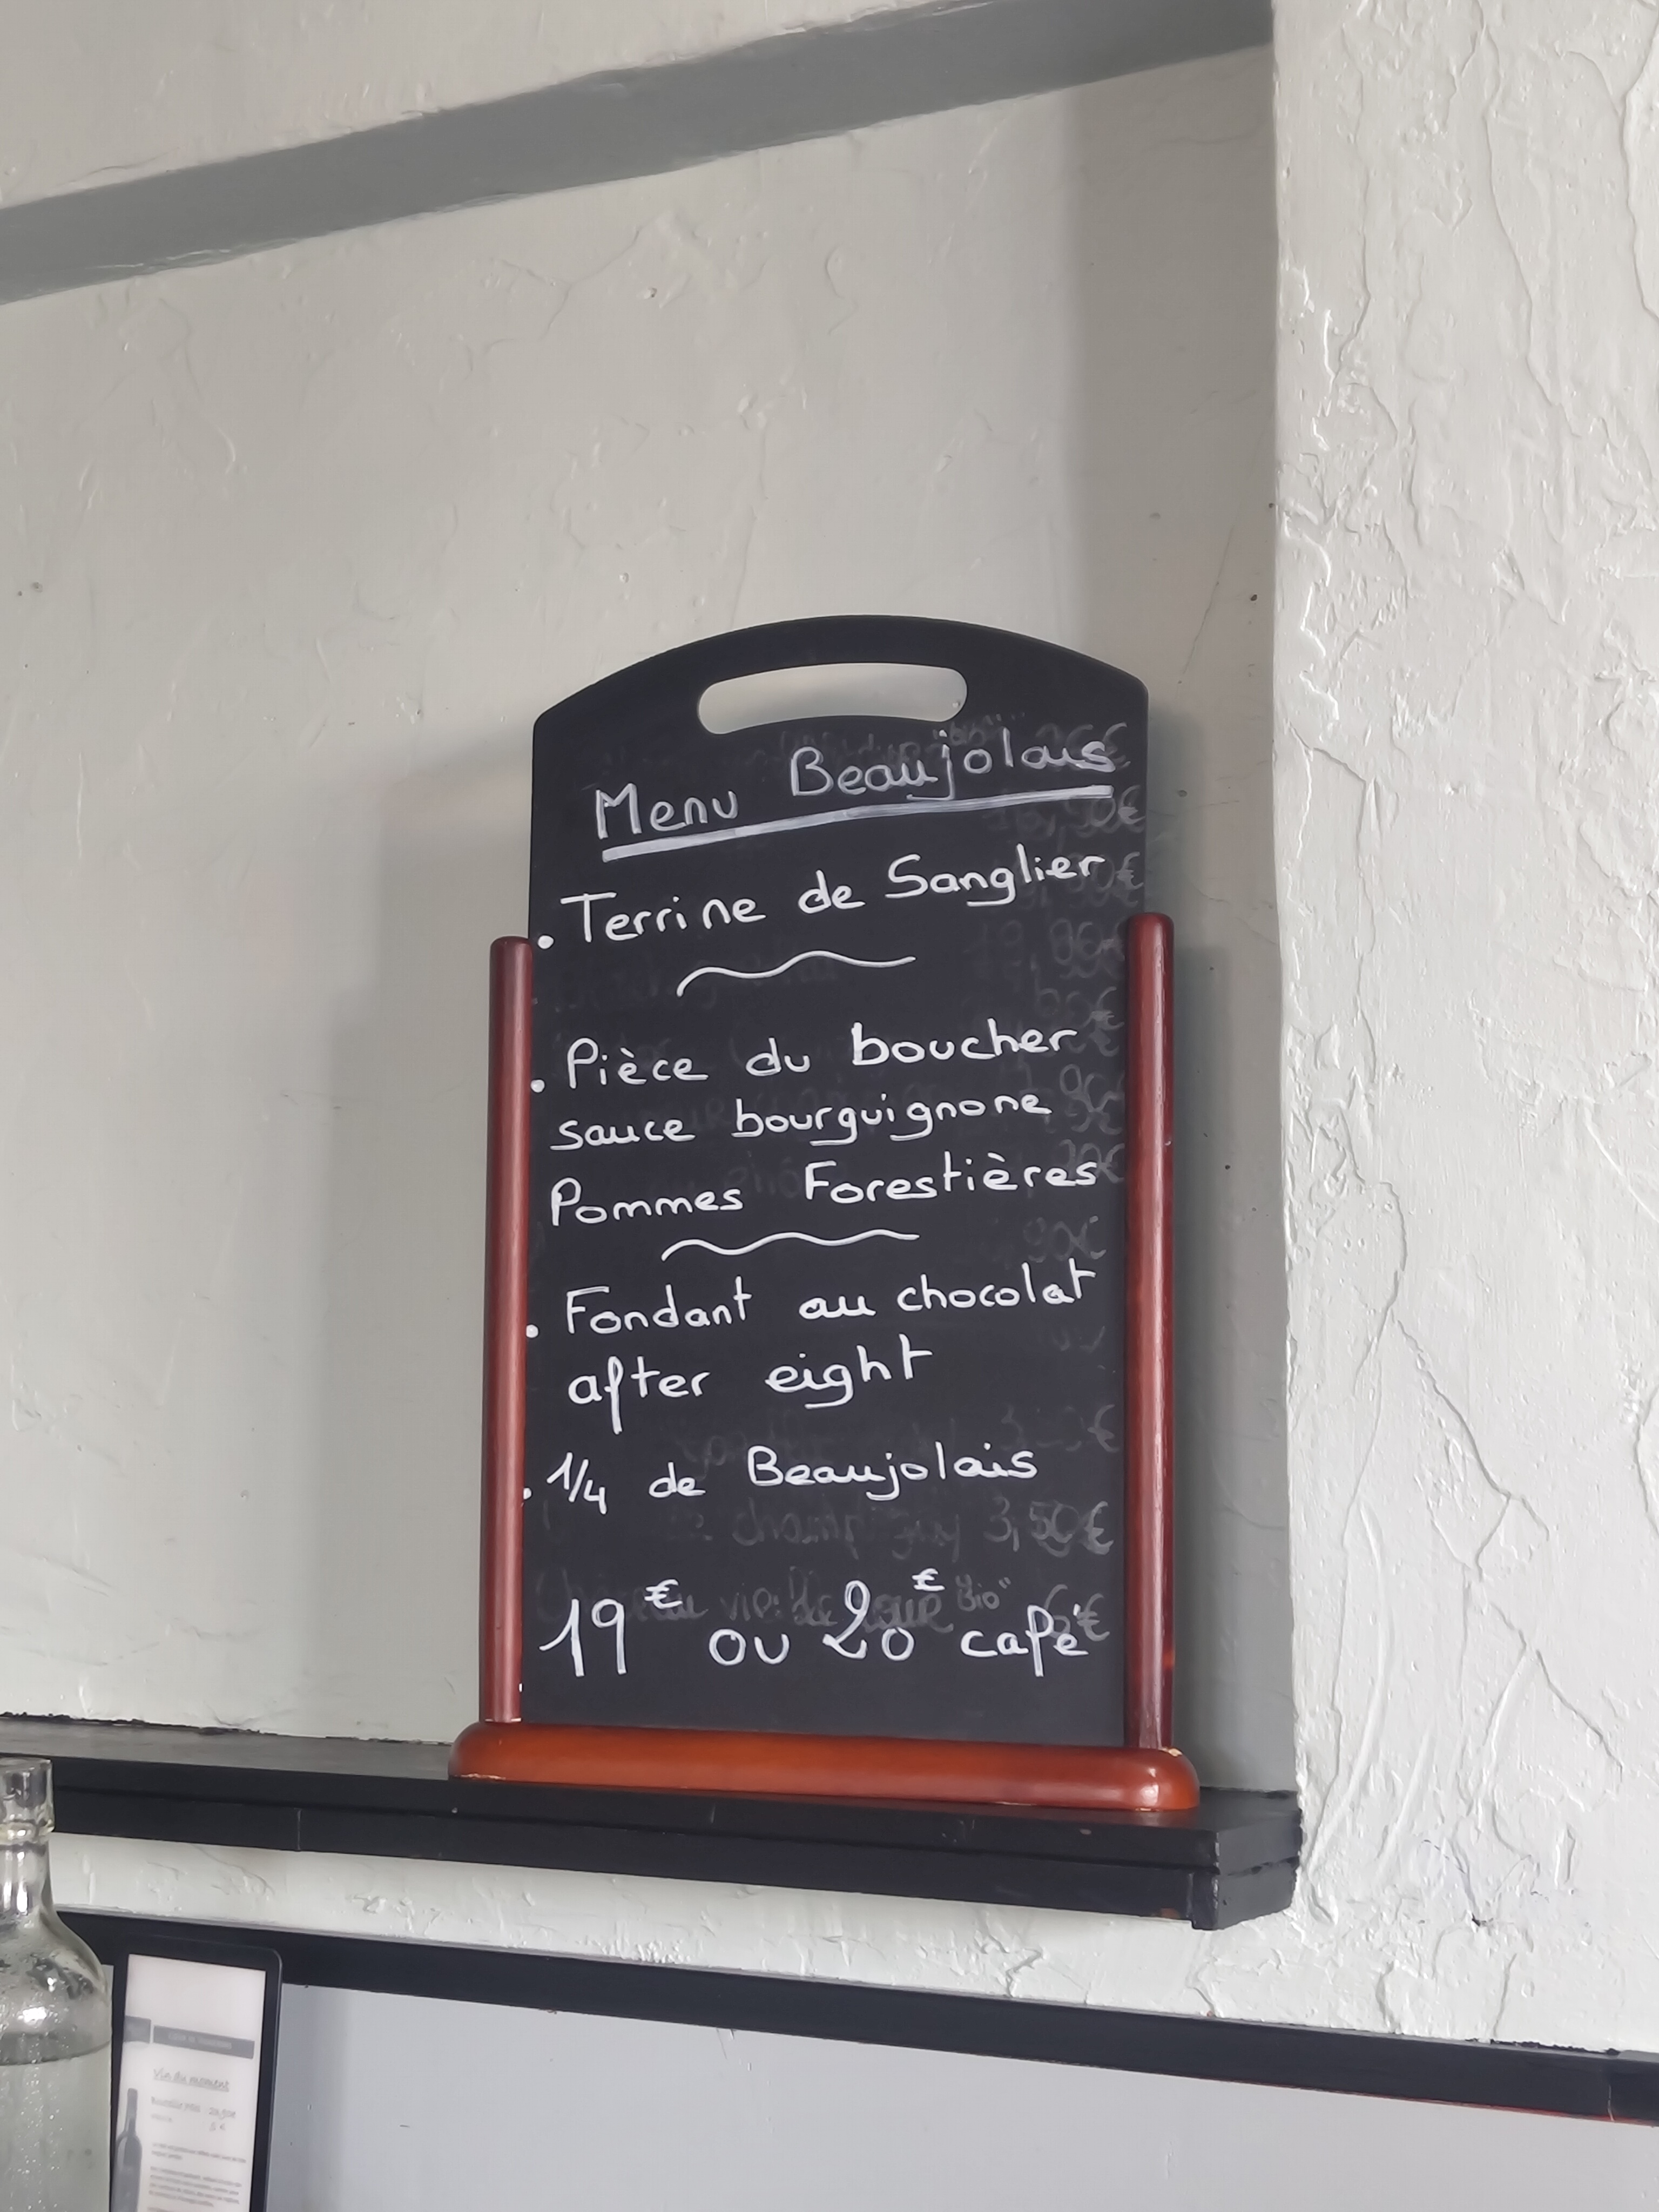 Menu Beaujolais
. Terrine de Sanglier
. Pièce du boucher
sauce bourguignone
Pommes Forestières
. Fondant au chocolat
after eight
. 1/4 de Beaujolais
19€ ou 20€ café
3,50€
Vin du moment